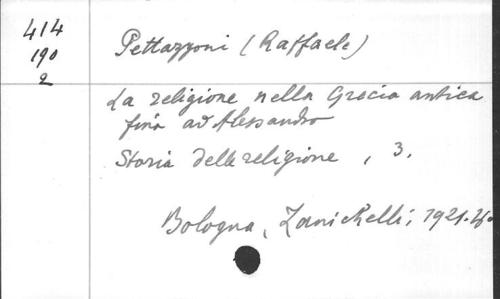 414
190
2
Pettazzoni (Raffaele)
La religione nella Grecia antica
fino ad Alessandro
Storia delle religione, 3.
Bologna, Zanichelli, 1921.